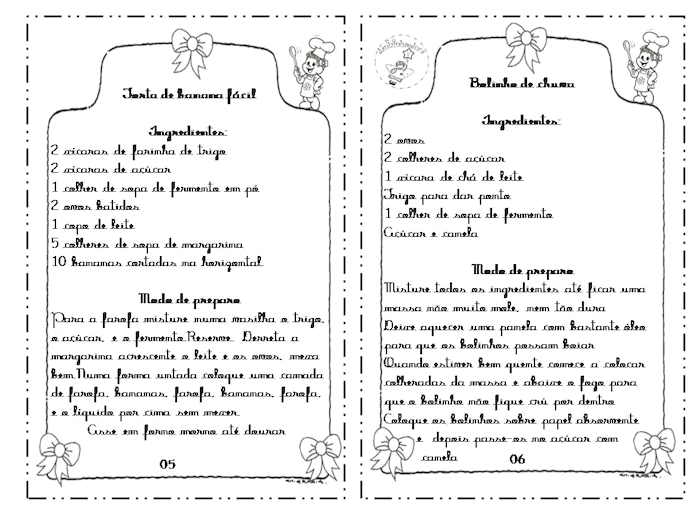 Torta de banana fácil
Ingredientes:
2 xícaras de farinha de trigo
2 xícaras de açúcar
1 colher de sopa de fermento em pó
2 ovos batidos
1 copo de leite
5 colheres de sopa de margarina
10 bananas cortadas na horizontal
Modo de preparo
Para a farofa misture numa vasilha o trigo,
o açúcar, e o fermento.Reserve. Derreta a
margarina acrescente o leite e os ovos, mexa
bem.Numa forma untada coloque uma camada
de farofa, bananas, farofa, bananas, farofa,
e o líquido por cima sem mexer.
Asse em forno morno até dourar
05
Bolinho de chuva
Ingredientes:
2 ovos
2 colheres de açúcar
1 xícara de chá de leite
Trigo para dar ponto
1 colher de sopa de fermento
Açúcar e canela
Modo de preparo
Misture todos os ingredientes até ficar uma
massa não muito mole, nem tão dura
Deixe aquecer uma panela com bastante óleo
para que os bolinhos possam boiar
Quando estiver bem quente comece a colocar
colheradas da massa e abaixe o fogo para
que o bolinho não fique crú por dentro
Coloque os bolinhos sobre papel absorvente
e depois passe-os no açúcar com
canela
06